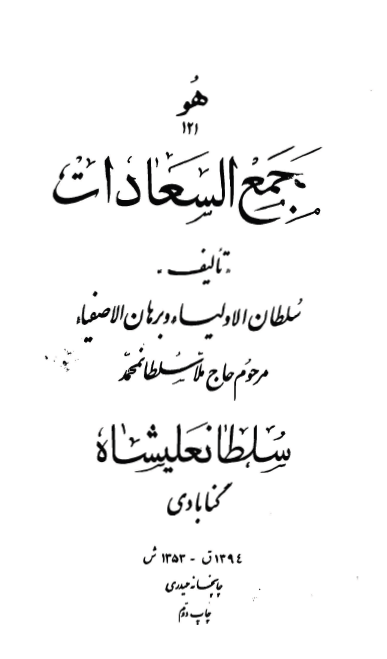 هُو
۱۲۱
مجمع السعادات
تألیف
سلطان الاولیاء و برهان الاصفیاء
مرحوم حاج ملا سلطانمحمّد
سلطانعلیشاه
گنابادی
۱۳۹۴ ق - ۱۳۵۳ ش
چاپخانه حیدری
چاپ دوّم